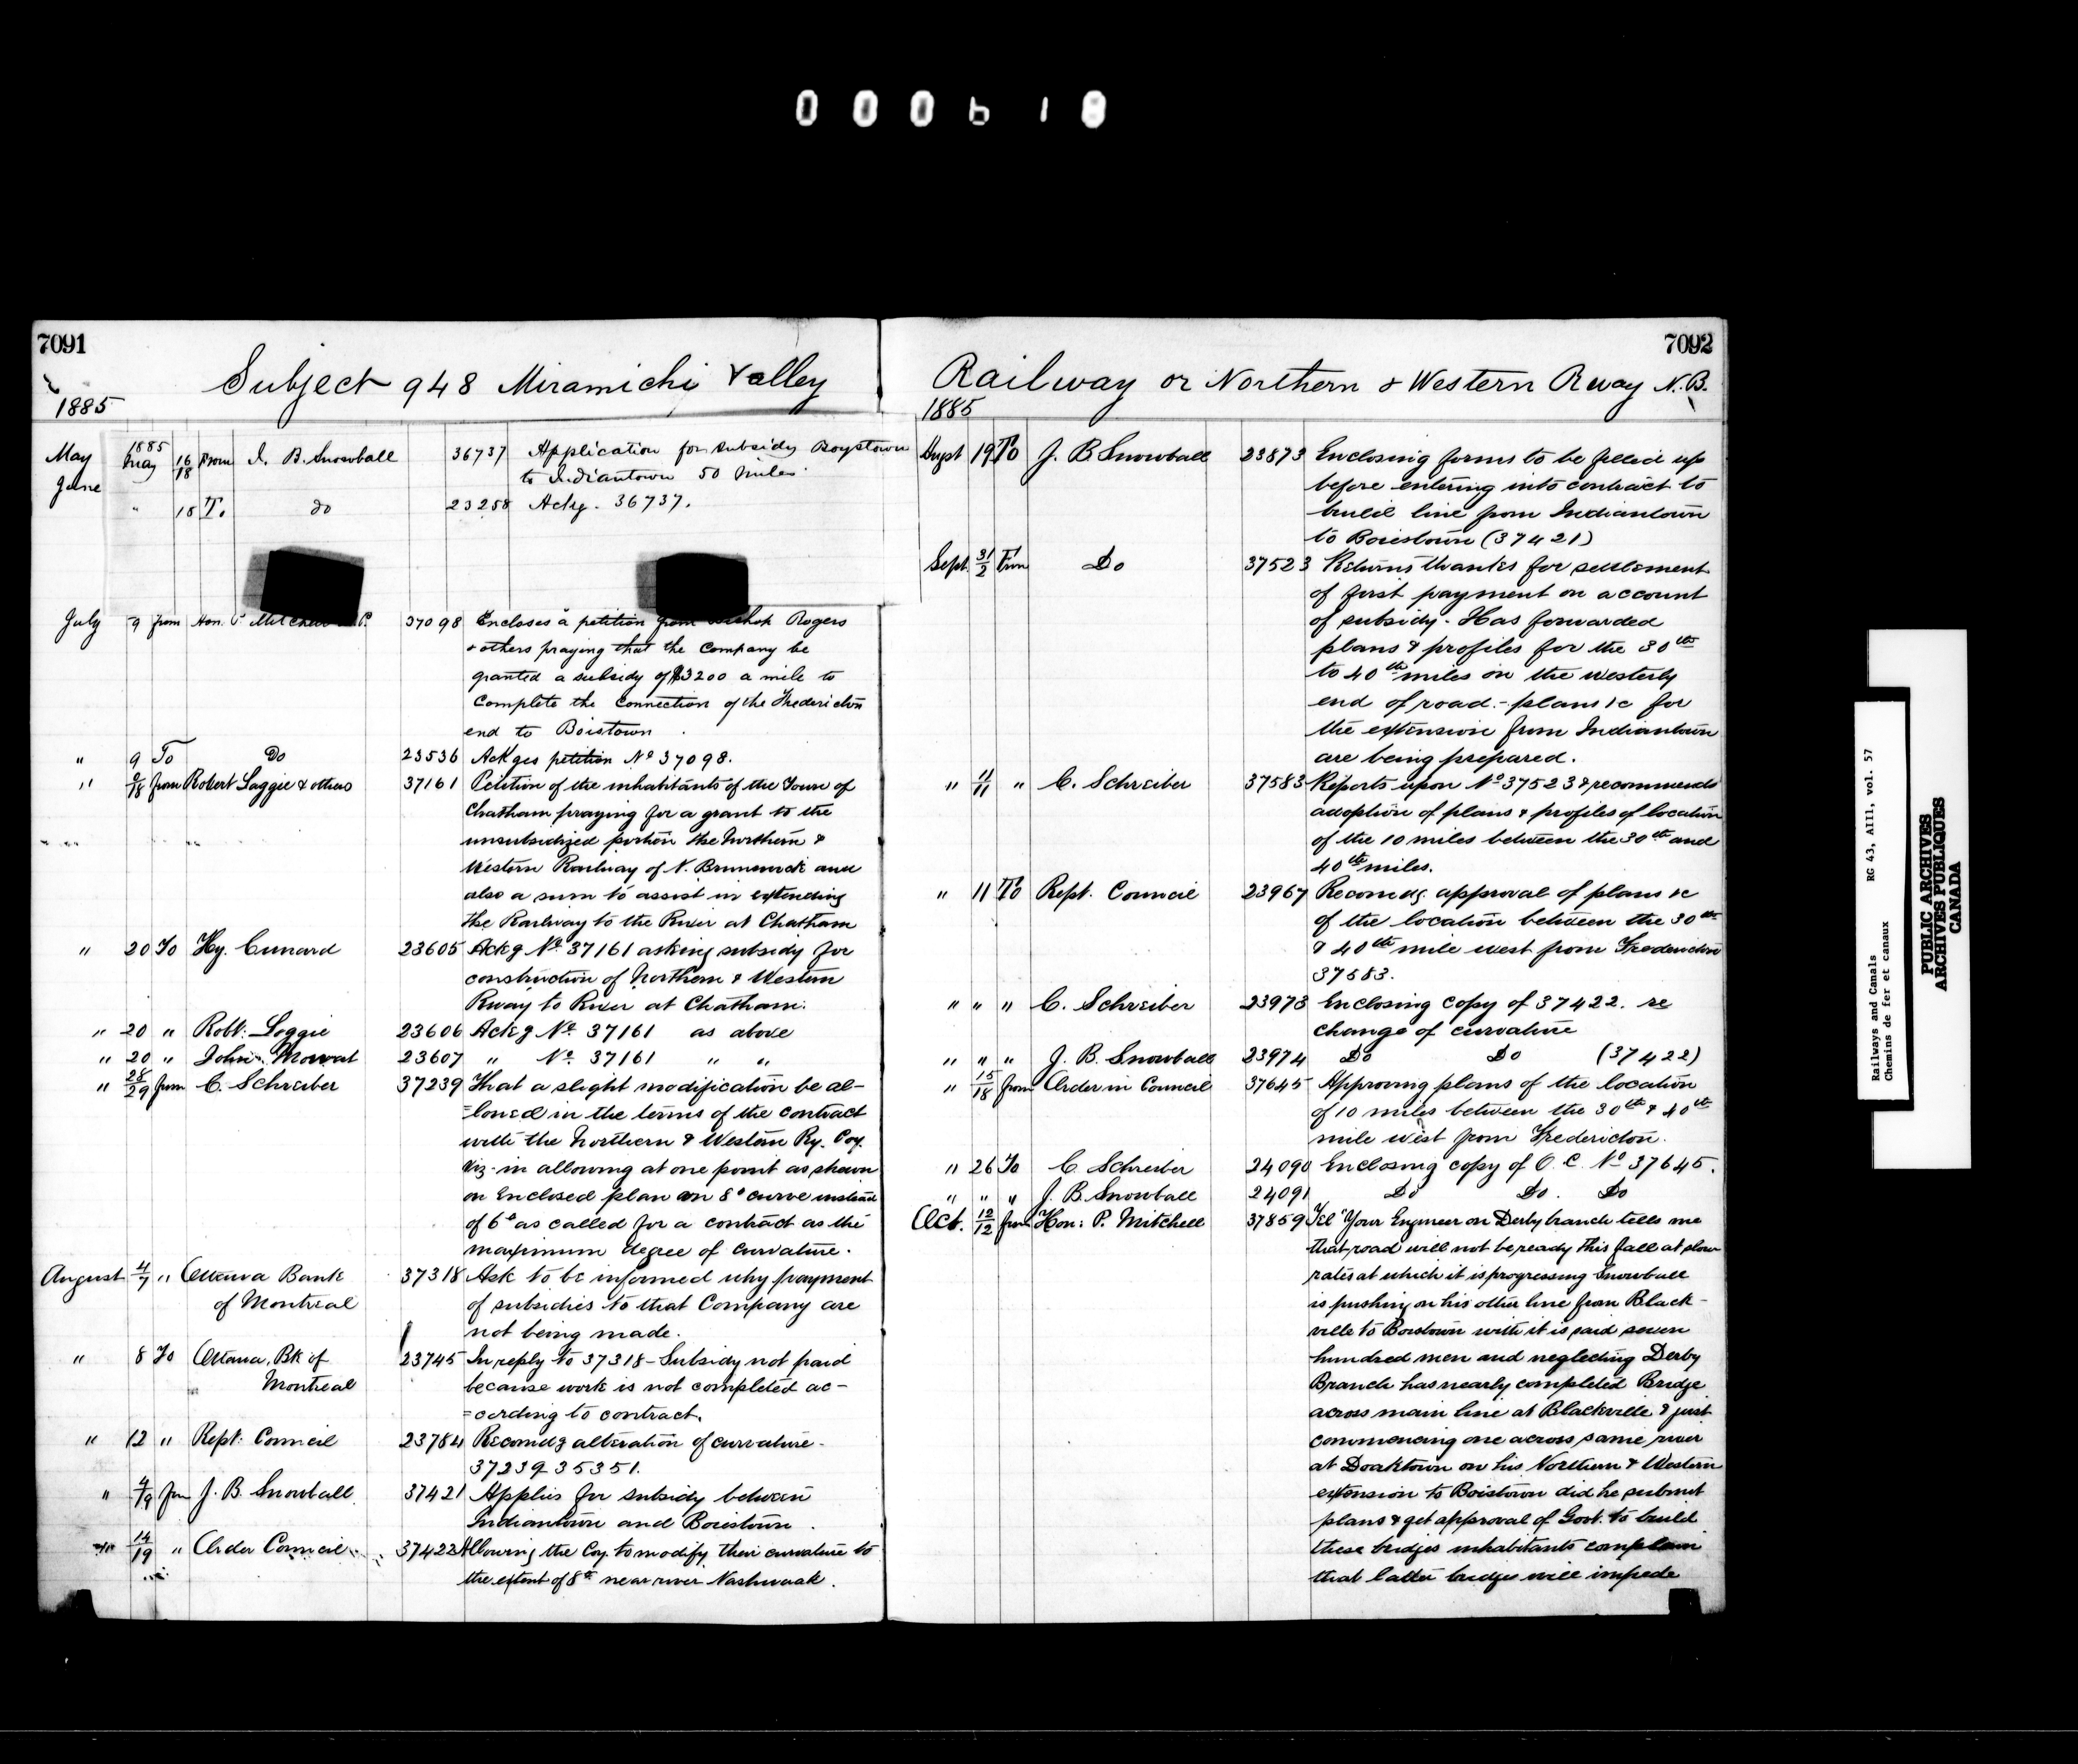 000618
7091
Subject 948 Miramichi Valley
1885
May 1885 May 16/18 From J. B. Snowball 36737 Application for subsidy Boystown
June
to Indiantown 50 miles
" 18 To do 23258 Ackg. 36737.
July 9 from Hon. P. Mitchell M.P. 37098 Encloses a petition from Bishop Rogers
& others praying that the Company be
granted a subsidy of $3200 a mile to
Complete the Connection of the Fredericton
end to Boistown
" 9 To Do 23536 Ackges petition No 37098.
" from Robert Loggie & others 37161 Petition of the inhabitants of the Town of
Chatham praying for a grant to the
unsubsidized portion the Northern &
Western Railway of N. Brunswick and
also a sum to assist in extending
the Railway to the River at Chatham
" 20 To Hy. Cunard 23605 Ackg No 37161 asking subsidy for
construction of Northern & Western
Rway to River at Chatham.
" 20 " Robt. Loggie 23606 Ackg No 37161 as above
" 20 " John Mowat 23607 " No 37161 " "
" 28/29 from C. Schreiber 37239 That a slight modification be al-
=lowed in the terms of the contract
with the Northern & Western Ry. Coy.
viz- in allowing at one point as shewn
on Enclosed plan an 8° curve instead
of 6° as called for a contract as the
maximum degree of curvature.
August 4/7 " Ottawa Bank 37318 Ask to be informed why payment
of Montreal of subsidies to that Company are
not being made.
" 8 To Ottawa, Bk of 23745 In reply to 37318 - Subsidy not paid
Montreal because work is not completed ac-
=cording to contract.
" 12 " Rept. Council 23784 Recomdg alteration of curvature-
37239 35351.
" 4/19 from J. B. Snowball 37421 Applies for subsidy between
Indiantown and Boiestown.
" 14/19 " Order Council 37422 Allowing the Coy. to modify their curvature to
the extent of 8° near river Nashwaak.
7092
Railway or Northern & Western Rway N.B.
1885
Augst 19 To J. B. Snowball 23873 Enclosing forms to be filled up
before entering into contract to
build line from Indiantown
to Boiestown (37421)
Sept. 31/2 From Do 37523 Returns thanks for settlement
of first payment on account
of subsidy. Has forwarded
plans & profiles for the 30th
to 40th miles on the westerly
end of road. - plans &c for
the extension from Indiantown
are being prepared.
" 11/11 " C. Schreiber 37583 Reports upon No 37523 & recommends
adoption of plans & profiles of location
of the 10 miles between the 30th and
40th miles.
" 11 To Rept. Council 23967 Recomdg. approval of plans &c
of the location between the 30th
& 40th mile west from Fredericton
37583.
" " " C. Schreiber 23973 Enclosing copy of 37422. re
change of curvature
" " " J. B. Snowball 23974 Do Do (37422)
" 15/18 from Order in Council 37645 Approving plans of the location
of 10 miles between the 30th & 40th
mile west from Fredericton.
" 26 To C. Schreiber 24090 Enclosing copy of O. C. No 37645.
" " " J. B. Snowball 24091 Do Do. Do
Oct. 12/12 from Hon: P. Mitchell 37859 Tel "Your Engineer on Derby branch tells me
that road will not be ready this fall at slow
rates at which it is progressing Snowball
is pushing on his other line from Black-
ville to Boistown with it is said seven
hundred men and neglecting Derby
Branch has nearly completed Bridge
across main line at Blackville & just
commencing one across same river
at Doaktown on his Northern & Western
extension to Boistown did he submit
plans & get approval of Govt. to build
these bridges inhabitants complain
that latter bridges will impede
Railways and Canals RG 43, AIII, vol. 57
Chemins de fer et canaux
PUBLIC ARCHIVES
ARCHIVES PUBLIQUES
CANADA